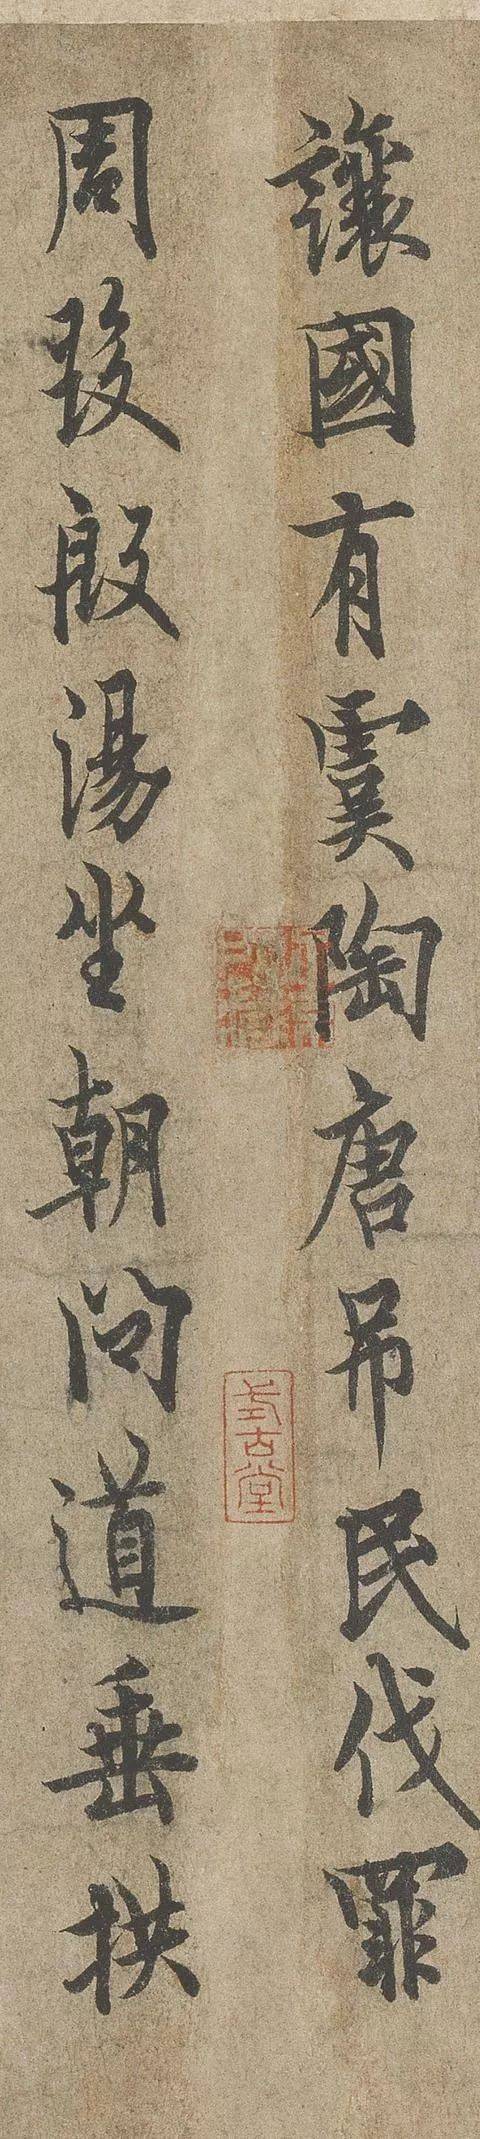 讓國有虞陶唐吊民伐罪
周發殷湯坐朝問道垂拱
式古堂